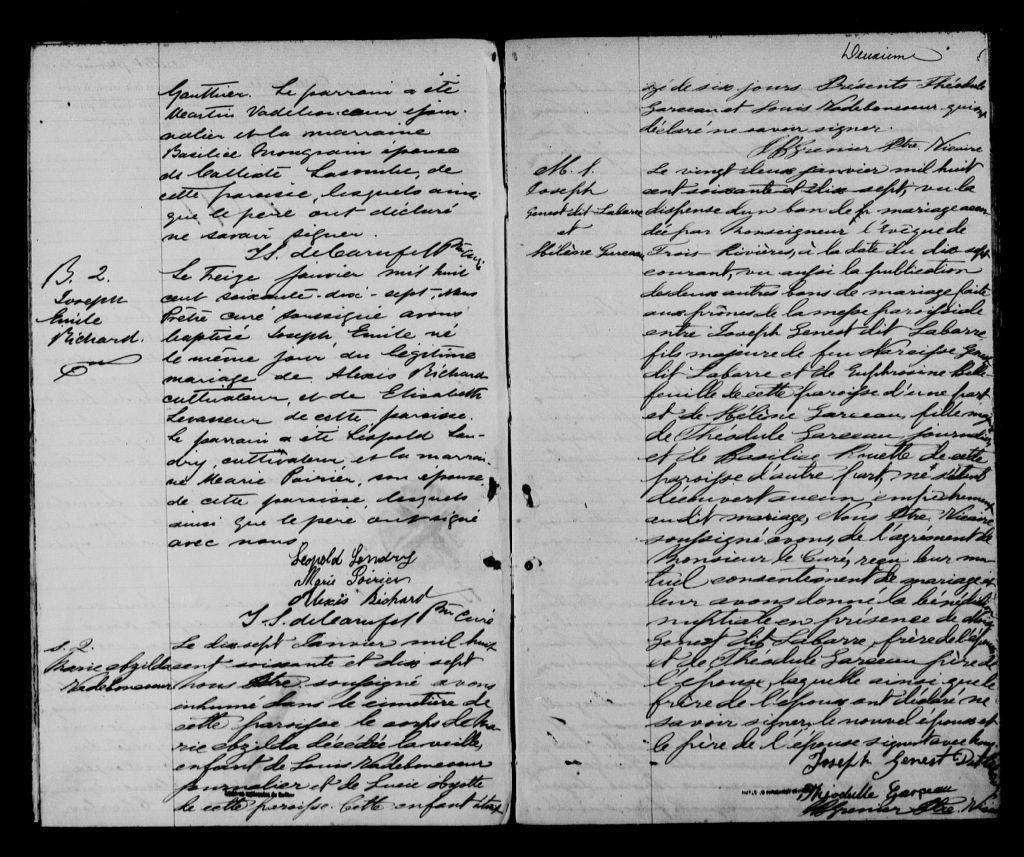 Gauthier. Le parrain a été
Martin Vadeboncoeur jour-
nalier et la marraine
Basilice Mongrain épouse
de Calixte Lacombe, de
cette paroisse, lesquels ainsi
que le père ont déclaré
ne savoir signer.
T. S. de Carufel Ptre Curé
B. 2.
Joseph
Emile
Richard.
Le treize janvier mil huit
cent soixante-dix-sept, Nous
Prêtre curé soussigné avons
baptisé Joseph Emile né
le même jour du légitime
mariage de Alexis Richard
cultivateur, et de Elisabeth
Levasseur de cette paroisse.
Le parrain a été Léopold Lan-
dry, cultivateur et la marrai-
ne Marie Poirier, son épouse
de cette paroisse lesquels
ainsi que le père ont signé
avec nous
Leopold Landry
Marie Poirier
Alexis Richard
T. S. de Carufel Ptre Curé
S. 2.
Marie
Vadeboncoeur
Le dix sept Janvier mil huit
cent soixante et dix sept
nous Ptre soussigné avons
inhumé dans le cimetière de
cette paroisse le corps de Ma-
rie décédée la veille,
enfant de Louis Vadeboncoeur
journalier et de Lucie Ayotte
de cette paroisse. Cette enfant était
Deuxième
agé de six jours Présents Théodule
Garceau et Louis Vadeboncoeur qui ont
déclaré ne savoir signer.
Grenier Ptre. Vicaire
M. 1.
Joseph
Genest dit Labarre
et
Hélène Garceau
Le vingt deux janvier mil huit
cent soixante et dix sept, vu la
dispense d'un ban de mariage accor
dée par Monseigneur l'Evêque de
Trois Rivières, à la date du dix sept
courant, vu aussi la publication
des deux autres bans de mariage faite
aux prônes de la messe paroissiale
entre Joseph Genest dit Labarre
fils majeure de feu Narcisse Genest
dit Labarre et de Euphrosine Belle
feuille de cette paroisse d'une part
et de Hélène Garceau, fille maj
de Théodule Garceau journalier
et de Basilice Rouette de cette
paroisse d'autre part, ne s'étant
découvert aucun empêchement
au dit mariage, Nous Ptre. Vicaire
soussigné avons, de l'agrément de
Monsieur le Curé, reçu leur mu
tuel consentement de mariage et
leur avons donné la bénédiction
nuptiale en présence de
Genest dit Labarre, frère de l'époux
et de Théodule Garceau frère de
l'épouse, laquelle ainsi que le
frère de l'époux ont déclaré ne
savoir signer, le nouvel époux et
le frère de l'épouse signent avec nous
Joseph Genest
Théodulle Garceau
Grenier Ptre. Vicaire